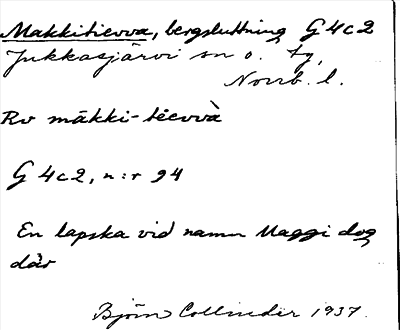 Makkitievva, bergsluttning G4c2
Jukkasjärvi sn o. tg,
Norrb. l.
Rv mäkki-tievvà
G 4c2, n:r 94
En lapska vid namn Maggi dog
där
Björn Collinder 1937.